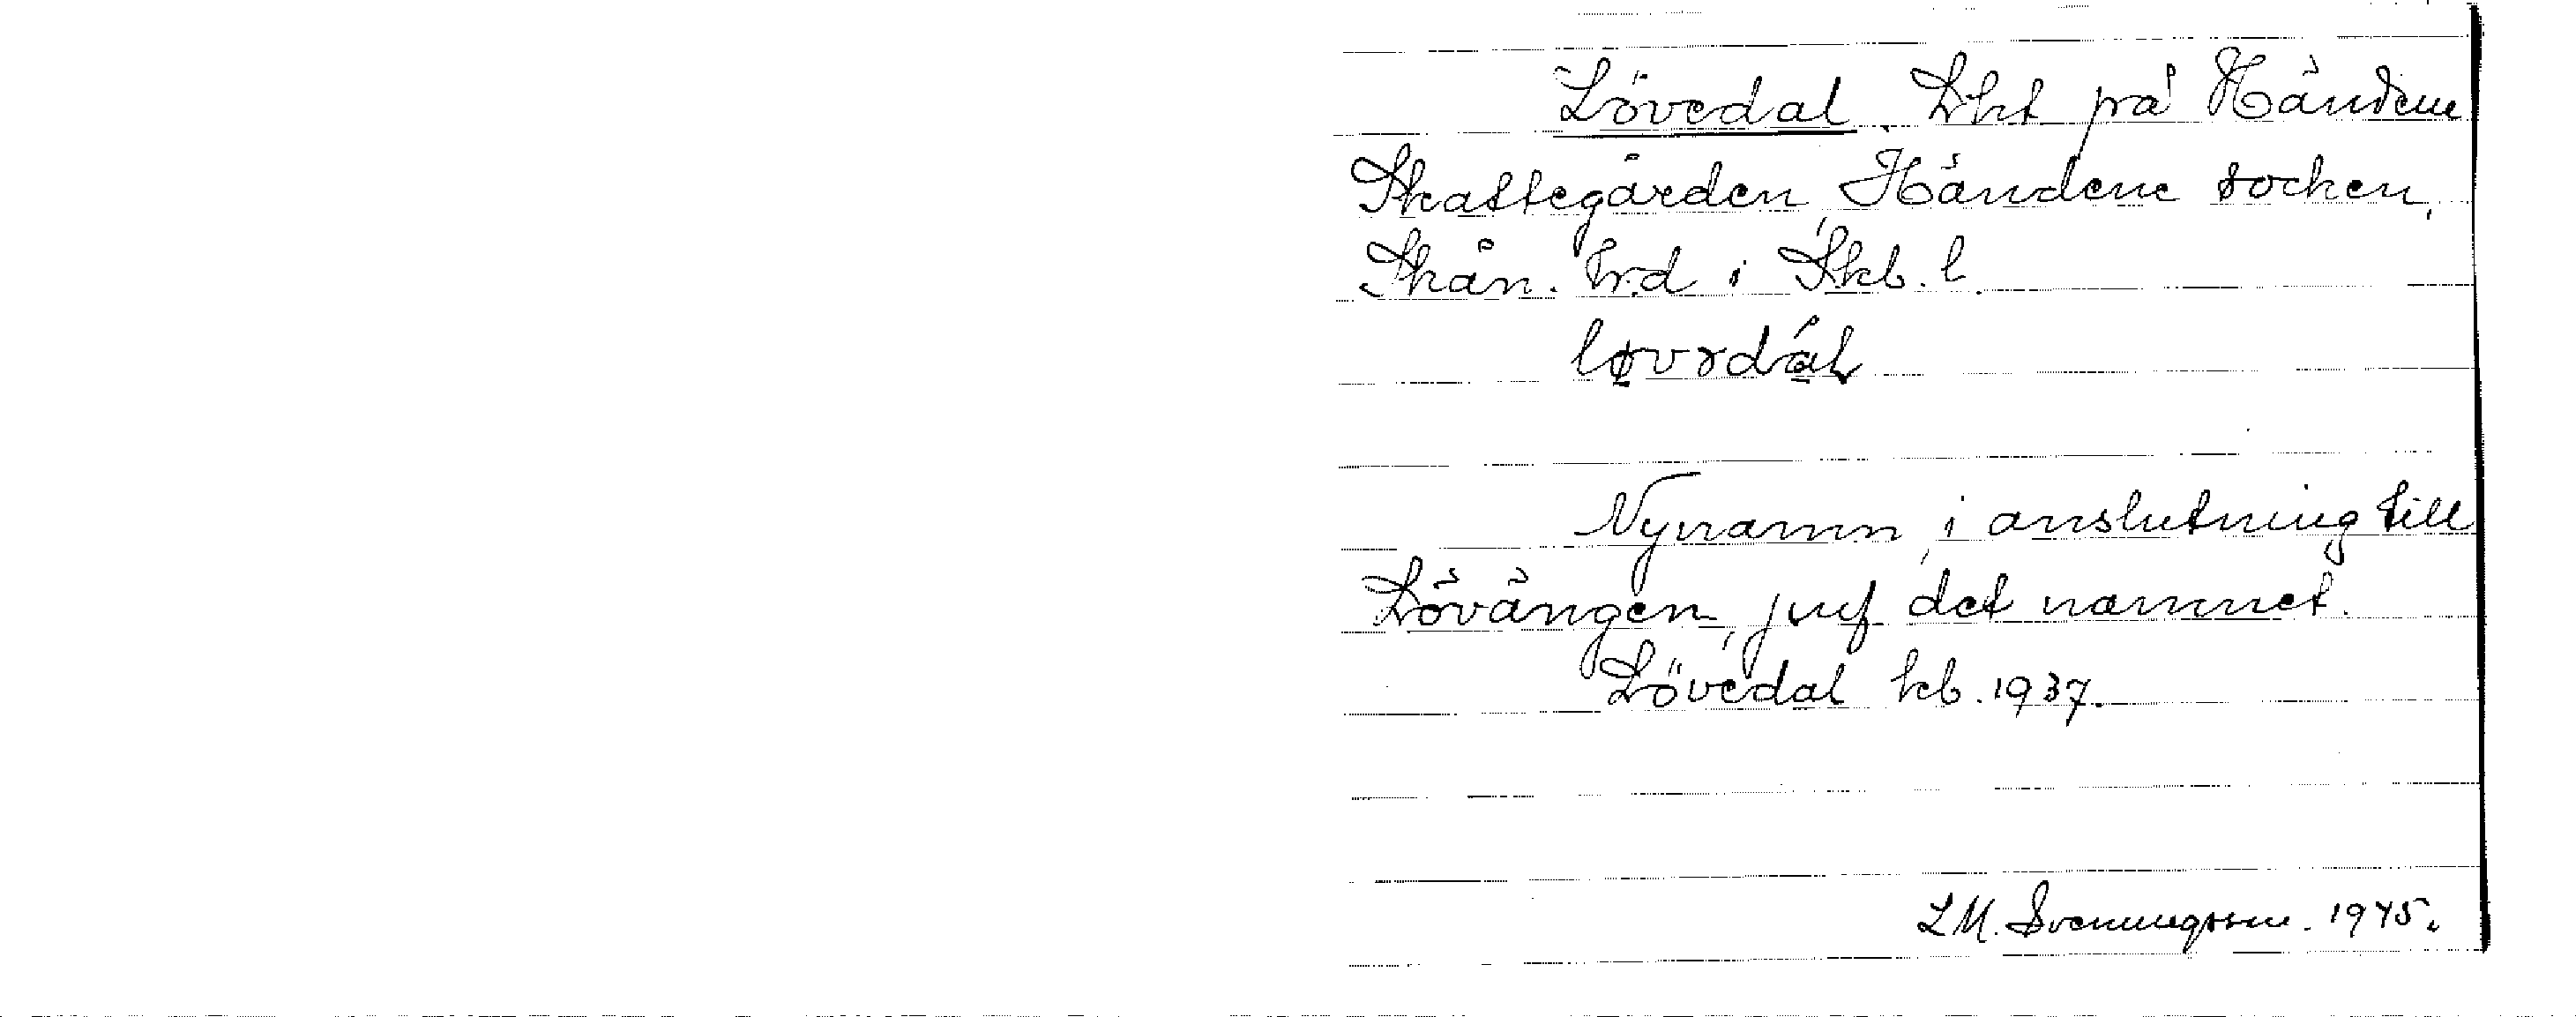 Lövedal. Lht på Händene
Skattegården, Händene socken,
Skån. hd i Skb. l.
Nynamn, i anslutning till
Lövängen, jmf det namnet.
Lövedal kb. 1937.
L M. Svenungsson. 1945.